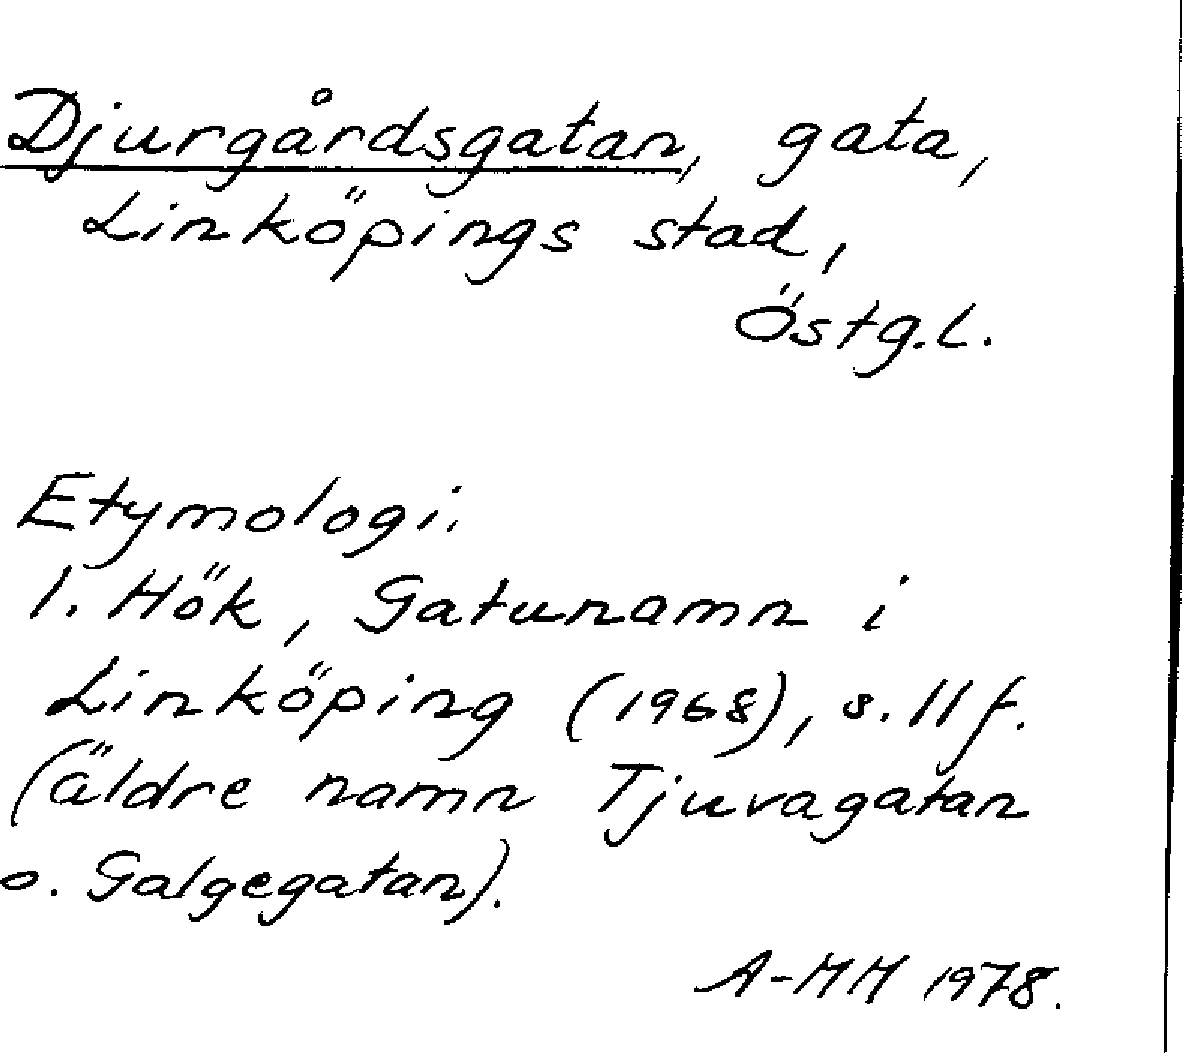 Djurgårdsgatan, gata,
Linköpings stad,
Östg.l.
Etymologi.
1. Hök, Gatunamn i
Linköping (1968), s. 11 f.
(äldre namn Tjuvagatan
o. Galgegatan).
A-MM 1978.